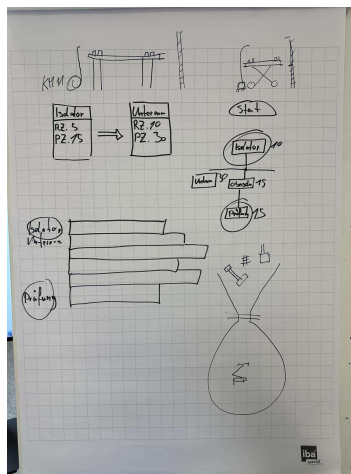 KHM
Isolator
RZ. 5
PZ. 15
Unterarm
RZ. 10
PZ. 30
Start
Isolator
10
30
15
Prüfung
15
Isolator
Unterarm
Prüfung
#
iba